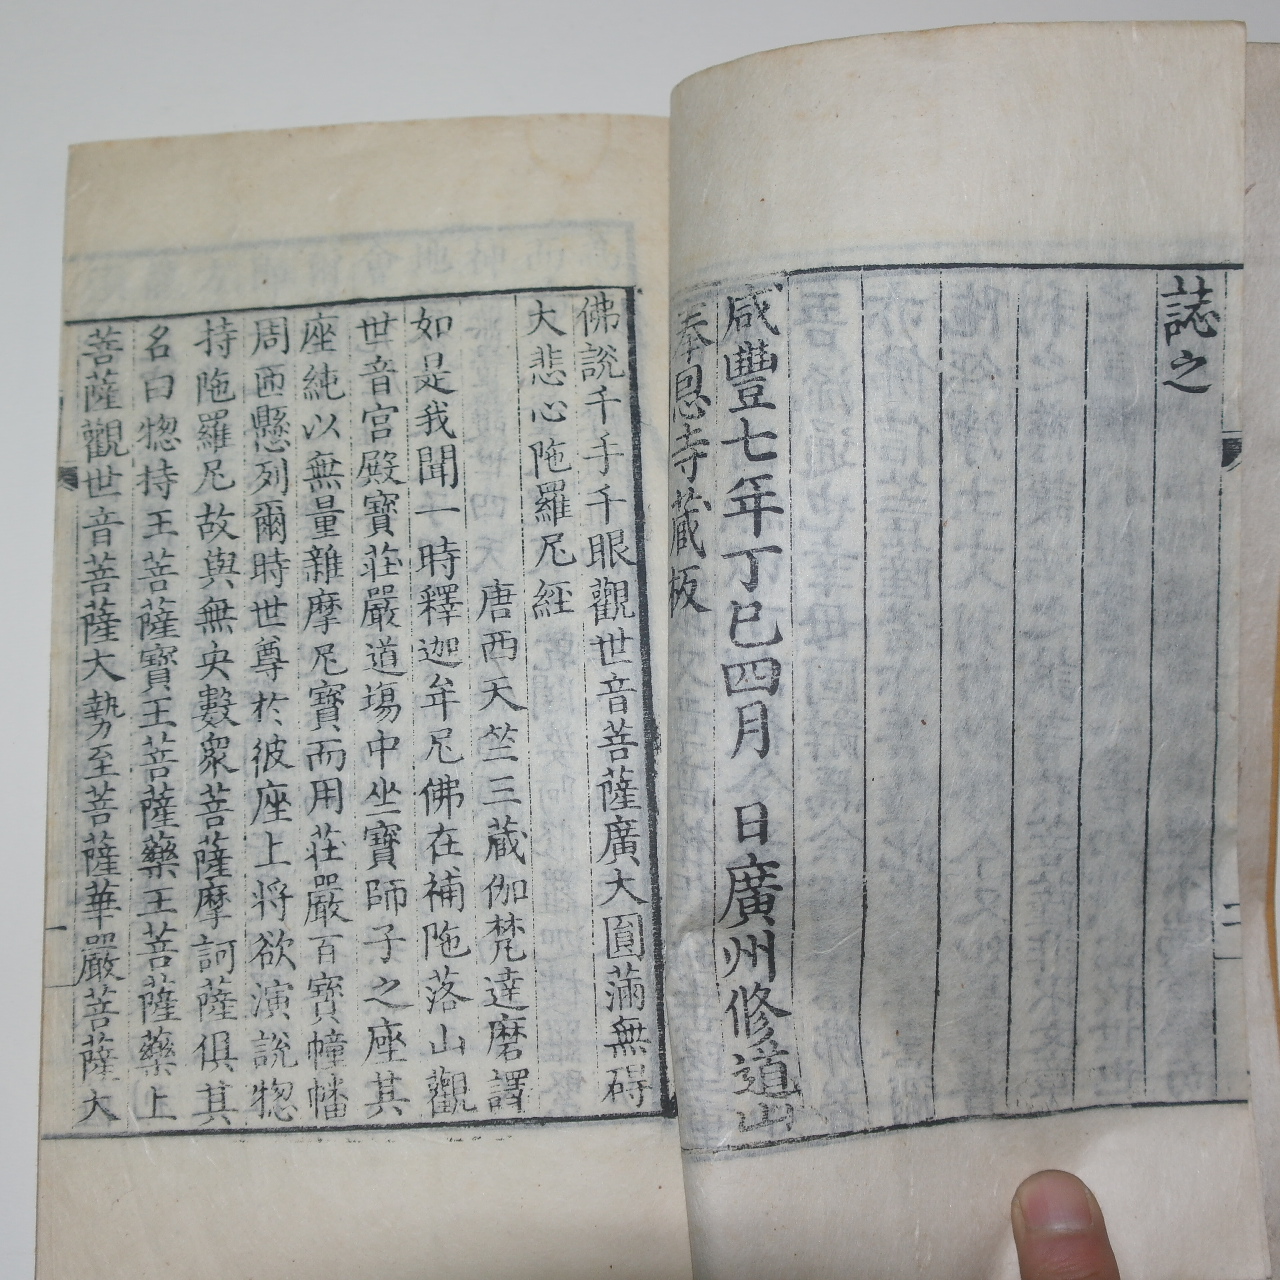 誌之
咸豐七年丁巳四月 日廣州修道山
奉恩寺藏板
佛說千手千眼觀世音菩薩廣大圓滿無碍
大悲心陁羅尼經
唐西天竺三藏伽梵達磨譯
如是我聞一時釋迦牟尼佛在補陁落山觀
世音宮殿寶莊嚴道場中坐寶師子之座其
座純以無量雜摩尼寶而用莊嚴百寶幢幡
周匝懸列爾時世尊於彼座上将欲演說惣
持陁羅尼故與無央數衆菩薩摩訶薩俱其
名曰惣持王菩薩寶王菩薩藥王菩薩藥上
菩薩觀世音菩薩大勢至菩薩華嚴菩薩大
二
一